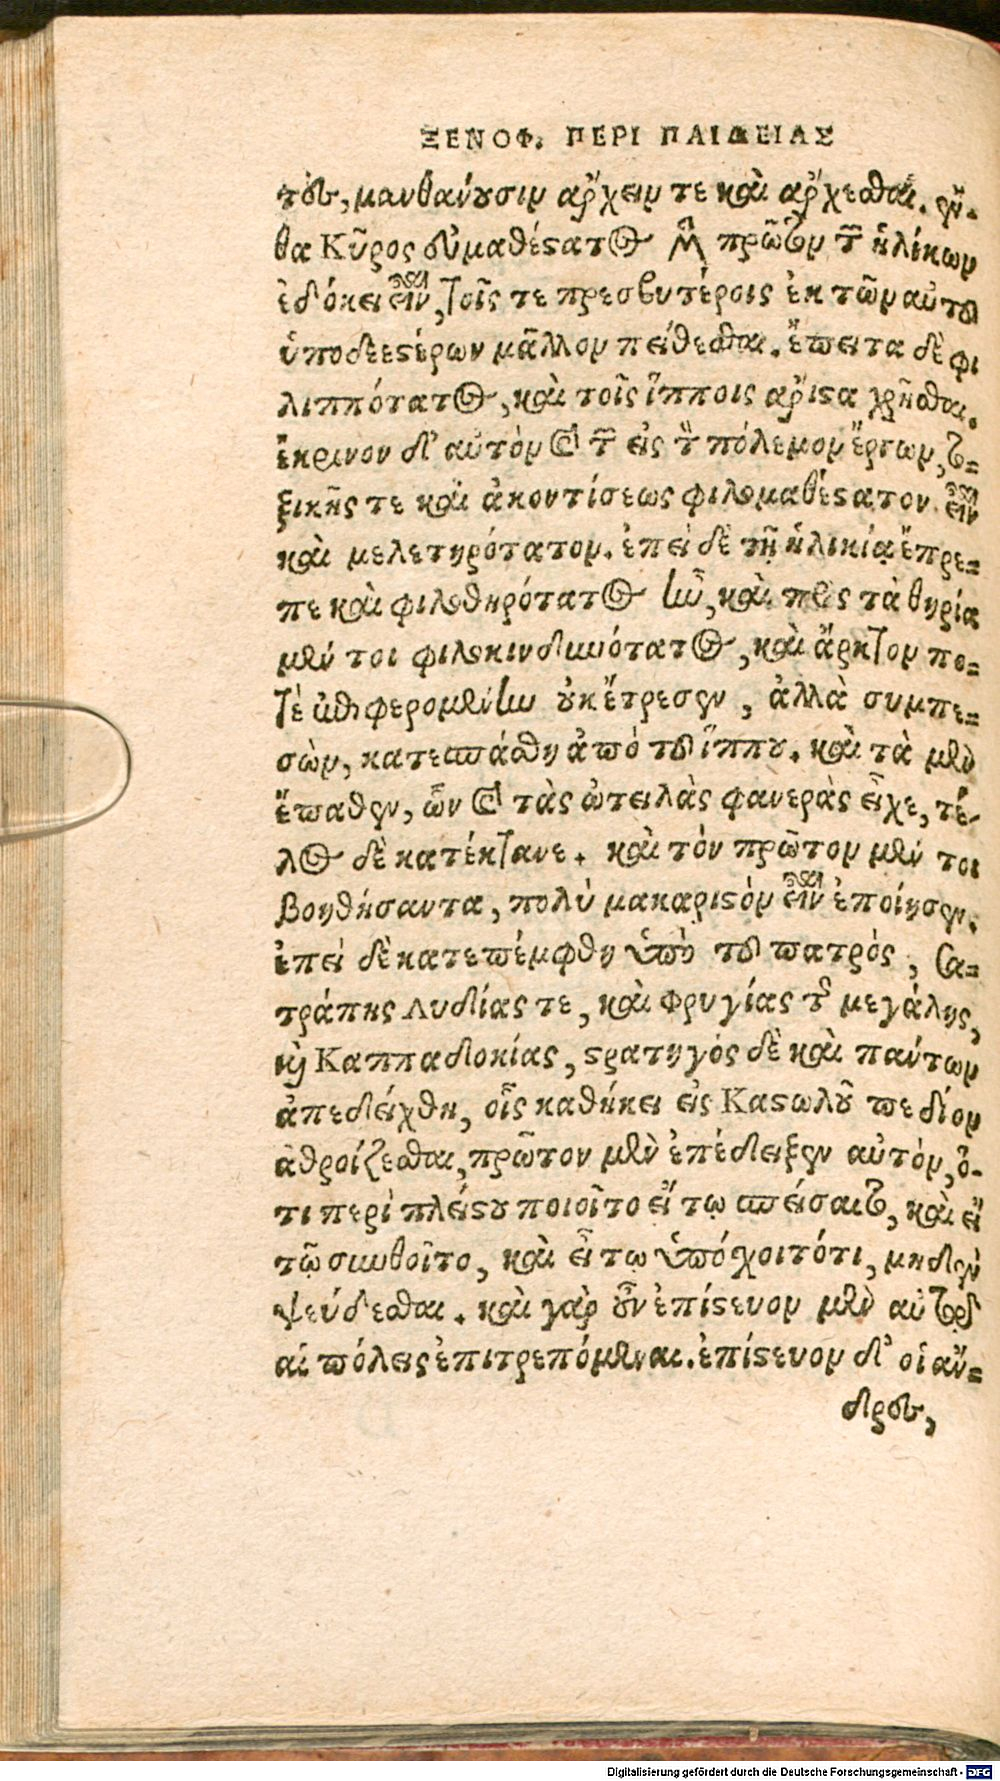 ΞΕΝΟΦ. ΠΕΡΙ ΠΑΙΔΕΙΑΣ
τες, μανθάνουσιν ἄρχειν τε καὶ ἄρχεσθαι. ἔν-
θα Κῦρος εὐμαθέστατος μὲν πρῶτον τῶν ἡλίκων
ἐδόκει εἶναι, τοῖς τε πρεσβυτέροις ἐκ τῶν αὐτοῦ
ὑποδεεστέρων μᾶλλον πείθεσθαι. ἔπειτα δὲ φι
λιππότατος, καὶ τοῖς ἵπποις ἄριστα χρῆσθαι.
ἔκρινον δ' αὐτὸν καὶ τῶν εἰς τὸν πόλεμον ἔργων, το-
ξικῆς τε καὶ ἀκοντίσεως φιλομαθέστατον εἶναι
καὶ μελετηρότατον. ἐπεὶ δὲ τῇ ἡλικίᾳ ἔπρε-
πε καὶ φιλοθηρότατος ἦν, καὶ πρὸς τὰ θηρία
μέν τοι φιλοκινδυνότατος, καὶ ἄρκτον πο-
τὲ ἐπιφερομένην οὐκ ἔτρεσεν, ἀλλὰ συμπε-
σὼν, κατεσπάσθη ἀπὸ τοῦ ἵππου. καὶ τὰ μὲν
ἔπαθεν, ὧν καὶ τὰς ὠτειλὰς φανερὰς εἶχε, τέ-
λος δὲ κατέκτανε. καὶ τὸν πρῶτον μέν τοι
βοηθήσαντα, πολὺ μακαριστὸν εἶναι ἐποίησεν.
ἐπεὶ δὲ κατεπέμφθη ὑπὸ τοῦ πατρὸς, Σα-
τράπης Λυδίας τε, καὶ Φρυγίας τῆς μεγάλης,
καὶ Καππαδοκίας, στρατηγὸς δὲ καὶ πάντων
ἀπεδείχθη, οἷς καθήκει εἰς Καστωλοῦ πεδίον
ἀθροίζεσθαι, πρῶτον μὲν ἐπέδειξεν αὐτὸν, ὅ-
τι περὶ πλείστου ποιοῖτο εἴ τῳ σπείσαιτο, καὶ εἴ
τῳ συνθοῖτο, καὶ εἴ τῳ ὑπόσχοιτό τι, μηδὲν
ψεύδεσθαι. καὶ γὰρ οὖν ἐπίστευον μὲν αὐτῷ
αἱ πόλεις ἐπιτρεπόμεναι. ἐπίστευον δ' οἱ ἄν-
δρες,
Digitalisierung gefördert durch die Deutsche Forschungsgemeinschaft - DFG